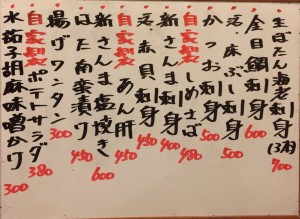 生ぼたん海老刺(3本) 700
金目鯛刺身 600
活・床ぶし刺身 500
かつお刺身 500
自家製 しめさば 480
新さんま刺身 400
活・赤貝刺身 450
自家製 あん肝 450
新さんま塩焼き 600
はた南蛮漬け 450
揚げワンタン 300
自家製 ポテトサラダ 380
水茄子胡麻味噌かけ 300